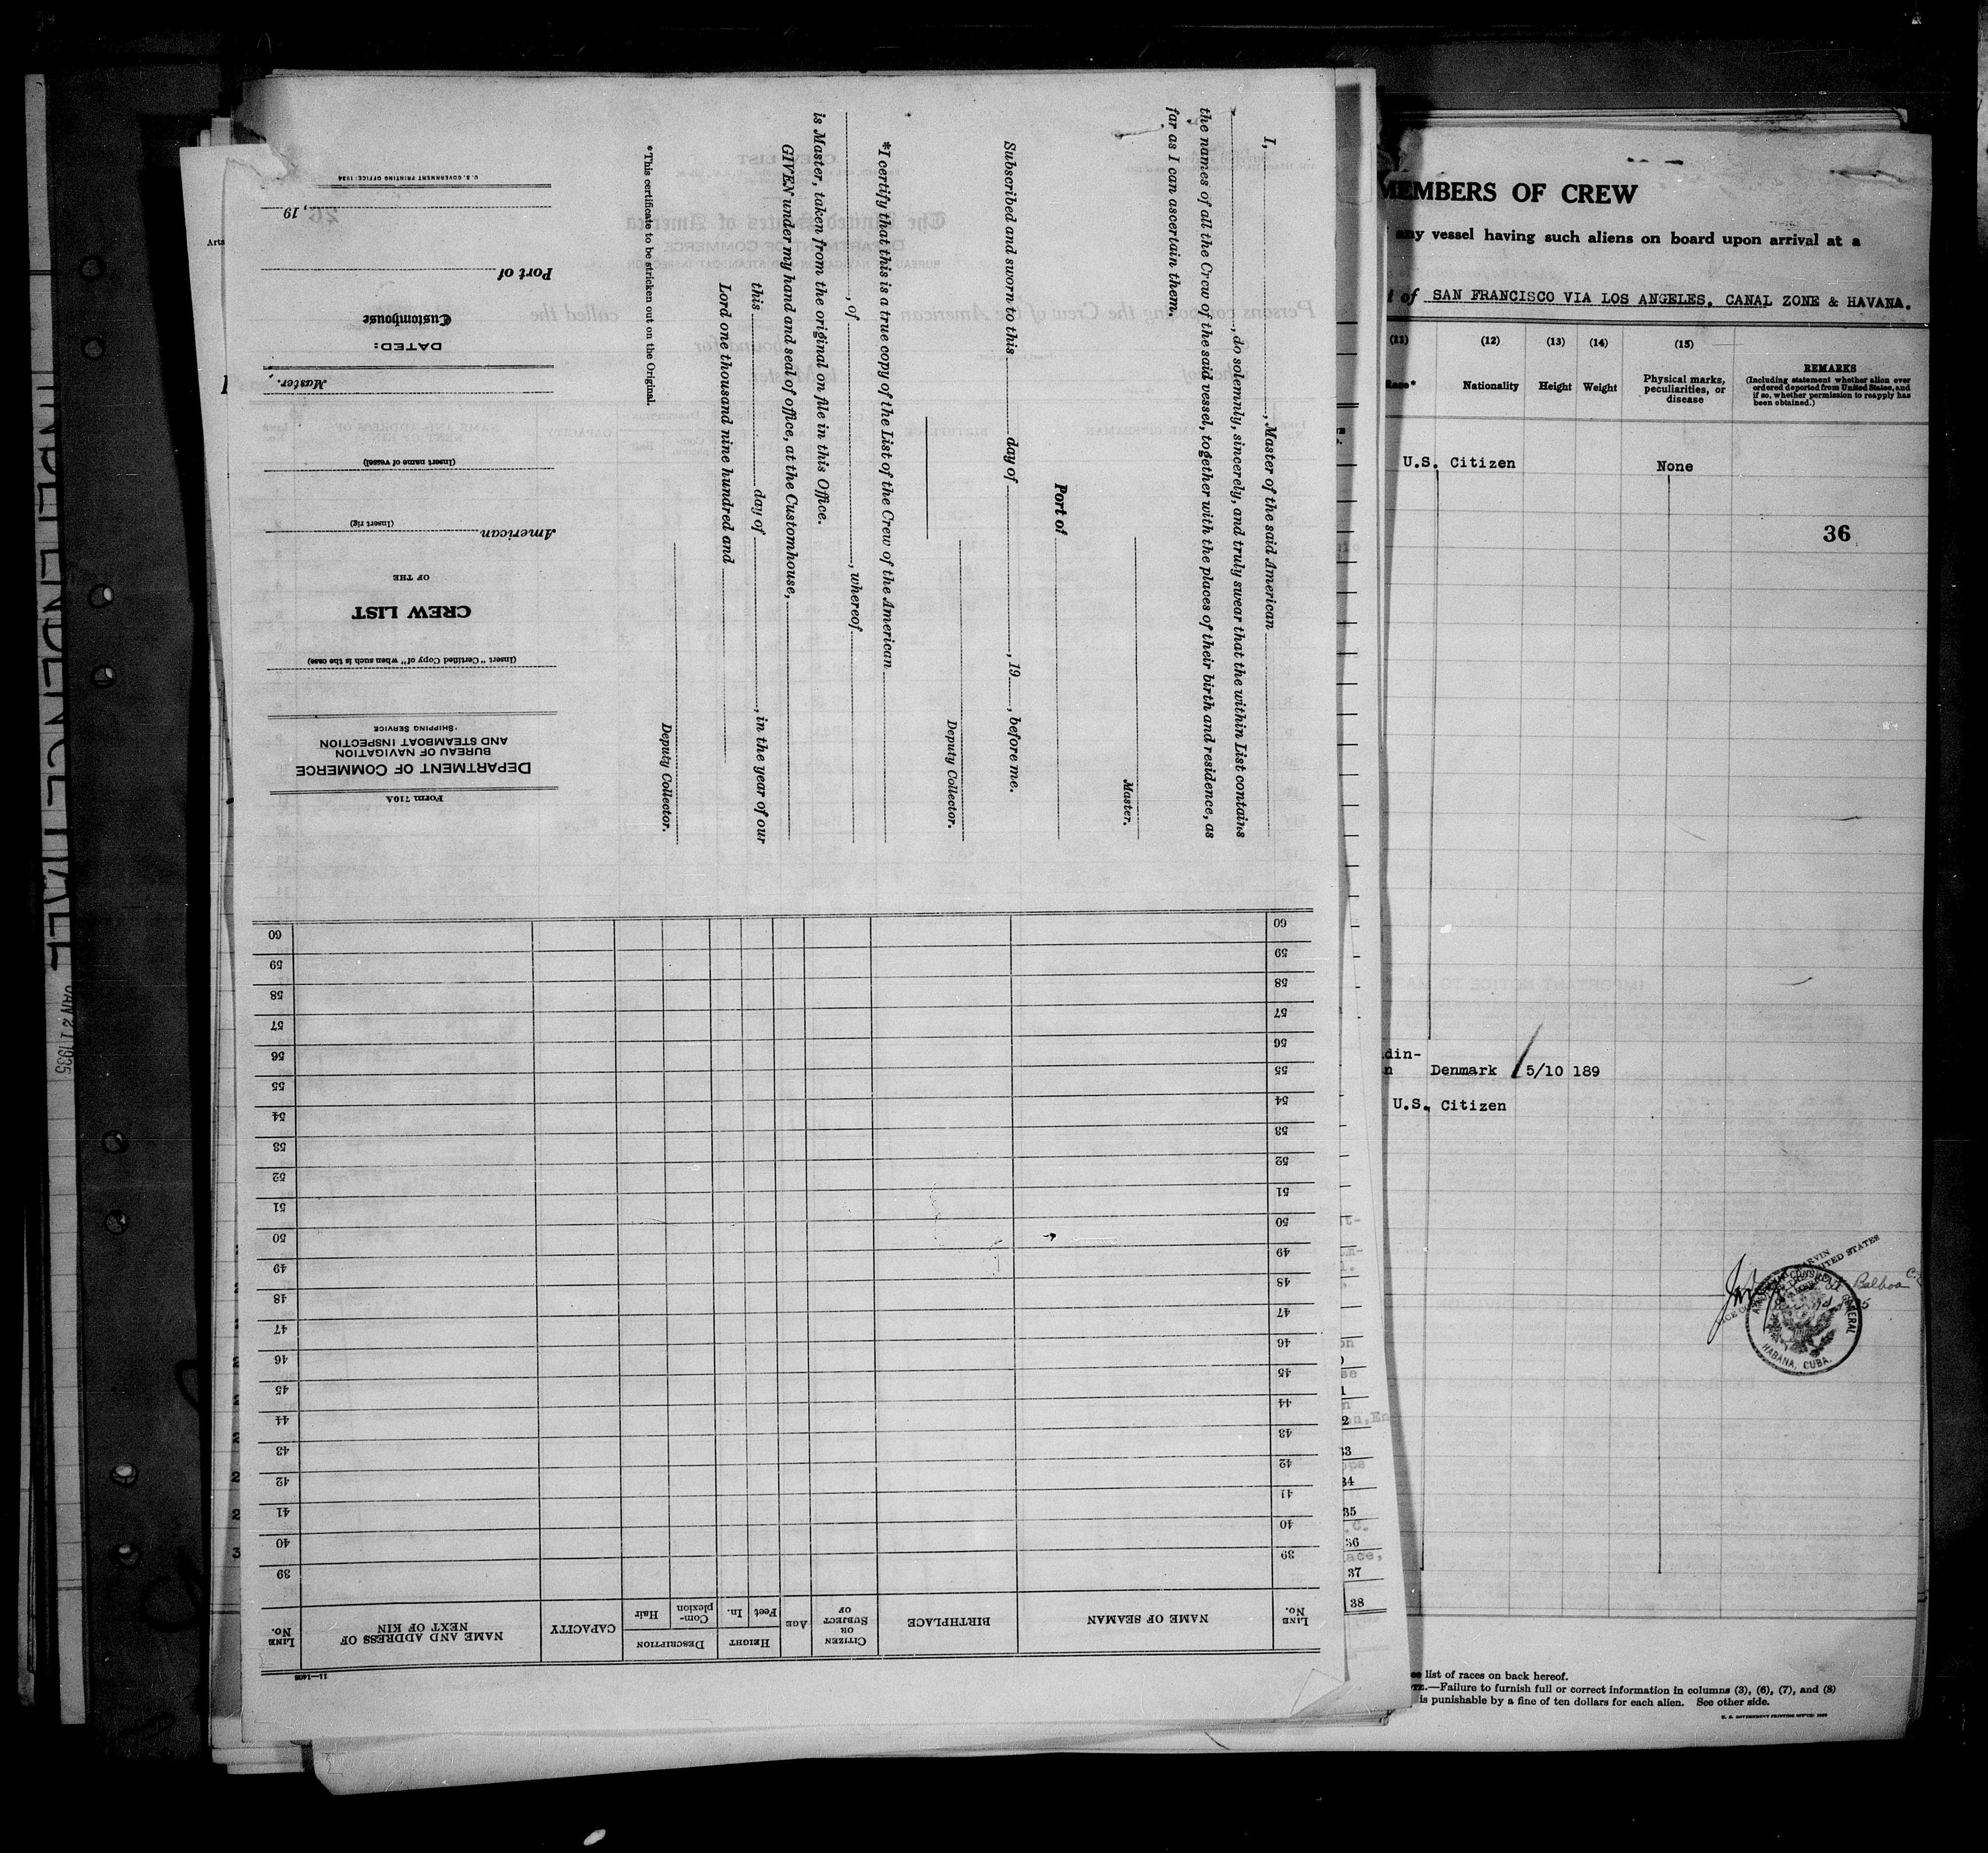 INDEPENDENCE HALL
JAN 21 1935
Form 710A
DEPARTMENT OF COMMERCE
BUREAU OF NAVIGATION
AND STEAMBOAT INSPECTION
SHIPPING SERVICE
(Insert "Certified Copy of" when such is the case)
CREW LIST
OF THE
American
(Insert rig)
(Insert name of vessel)
Master.
DATED:
Customhouse
Port of
, 19
U.S. GOVERNMENT PRINTING OFFICE: 1934
I, , Master of the said American
, do solemnly, sincerely, and truly swear that the within List contains
the names of all the Crew of the said vessel, together with the places of their birth and residence, as
far as I can ascertain them.
Master.
Port of
Subscribed and sworn to this day of , 19 , before me.
Deputy Collector.
*I certify that this is a true copy of the List of the Crew of the American
, of , whereof
is Master, taken from the original on file in this Office.
GIVEN under my hand and seal of office, at the Customhouse,
this day of , in the year of our
Lord one thousand nine hundred and
Deputy Collector.
*This certificate to be stricken out on the Original.
11—1408
LINE No. NAME OF SEAMAN BIRTHPLACE CITIZEN OR SUBJECT OF AGE HEIGHT Feet In. DESCRIPTION Complexion Hair CAPACITY NAME AND ADDRESS OF NEXT OF KIN LINE No.
39 39
40 40
41 41
42 42
43 43
44 44
45 45
46 46
47 47
48 48
49 49
50 50
51 51
52 52
53 53
54 54
55 55
56 56
57 57
58 58
59 59
60 60
35
36
37
38
MEMBERS OF CREW
any vessel having such aliens on board upon arrival at a
of SAN FRANCISCO VIA LOS ANGELES, CANAL ZONE & HAVANA.
(11) (12) (13) (14) (15)
Race* Nationality Height Weight Physical marks, peculiarities, or disease
REMARKS
(Including statement whether alien ever
ordered deported from United States, and
if so, whether permission to reapply has
been obtained.)
U.S. Citizen None
36
din-
n Denmark 5/10 189
U.S. Citizen
Balboa
GENERAL
HABANA, CUBA.
list of races on back hereof.
NOTE.—Failure to furnish full or correct information in columns (3), (6), (7), and (8)
is punishable by a fine of ten dollars for each alien. See other side.